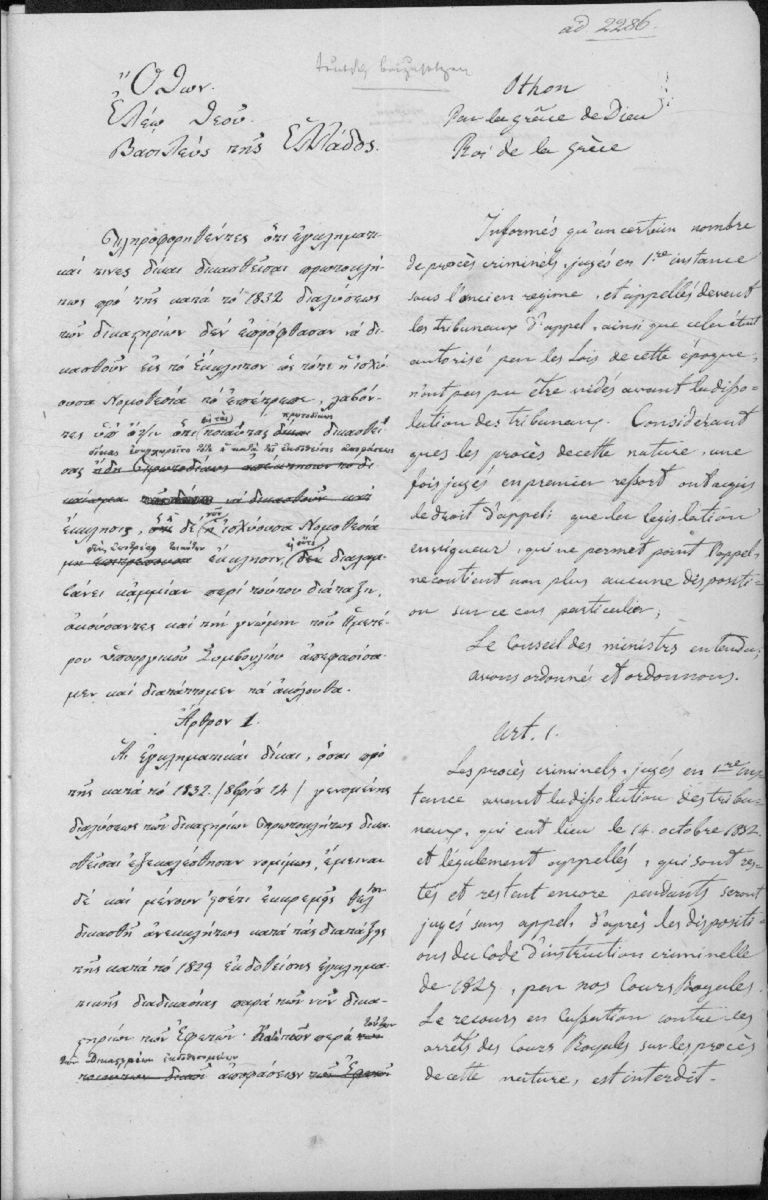 ad 2286.
Ὄθων.
Ἐλέῳ Θεοῦ.
Βασιλεὺς τῆς Ἑλλάδος.
Πληροφορηθέντες ὅτι ἐγκληματι-
καί τινες δίκαι δικασθεῖσαι πρωτοκλή-
τως πρὸ τῆς κατὰ τὸ 1832 διαλύσεως
τῶν δικαστηρίων δὲν ἐπρόφθασαν νὰ δι-
κασθοῦν εἰς τὸ ἔκκλητον ὡς τότε ἡ ἰσχύ-
ουσα Νομοθεσία τὸ ἐπέτρεπε, λαβόν-
τες ὑπ' ὄψιν ὅτι τοιαύτας δικασθεί
σας
ἐκκλήσεις, δὲ ἡ ἰσχύουσα Νομοθεσία
ἔκκλησιν, διαλαμ-
βάνει κἀμμίαν περὶ τούτου διάταξιν,
ἀκούσαντες καὶ τὴν γνώμην τοῦ Ἡμετέ-
ρου ὑπουργικοῦ Συμβουλίου ἀπεφασίσα-
μεν καὶ διατάττομεν τὰ ἀκόλουθα.
Ἄρθρον 1.
Αἱ ἐγκληματικαὶ δίκαι, ὅσαι πρὸ
τῆς κατὰ τὸ 1832 /8βρίου 14/ γενομένης
διαλύσεως τῶν δικαστηρίων πρωτοκλήτως δικα-
σθεῖσαι ἐξεκαλέσθησαν νομίμως, ἔμειναν
δὲ καὶ μένουν ἐσέτι ἐκκρεμεῖς θέλουν
δικασθῆ ἀνεκκλήτως κατὰ τὰς διατάξεις
τῆς κατὰ τὸ 1829 ἐκδοθείσης ἐγκλημα-
τικῆς διαδικασίας παρὰ τῶν νῦν δικα-
στηρίων τῶν Ἐφετῶν. Κατὰ τῶν παρὰ τούτων
τῶν Δικαστηρίων ἐκδοθησομένων
ἀποφάσεων
Othon
Par la grâce de Dieu
Roi de la Grèce
Informés qu'un certain nombre
de procès criminels, jugés en 1.re instance
sous l'ancien regime, et appellés devant
les tribunaux d'appel, ainsi que cela était
autorisé par les lois de cette époque,
n'ont pas pu être vidés avant la disso=
lution des tribunaux. Considérant
ques les procès de cette nature, une
fois jugés en premier ressort ont aquis
le droit d'appel; que la legislation
en vigueur, qui ne permet point l'appel,
ne contient non plus aucune dispositi=
on sur ce cas particulier;
Le Conseil des ministrs entendu;
avons ordonné et ordonnons.
Art. 1.
Les procès criminels, jugés en 1.re ins
tance avant la dissolution des tribu=
naux, qui eut lieu le 14 octobre 1832.
et légalement appellés, qui sont res=
tés et restent encore pendants seront
jugés sans appel, d'après les dispositi=
ons du Code d'instruction criminelle
de 1829, par nos Cours Royales.
Le recours en Cassation contre ces
arrêts des Cours Royales sur les procès
de cette nature, est interdit.